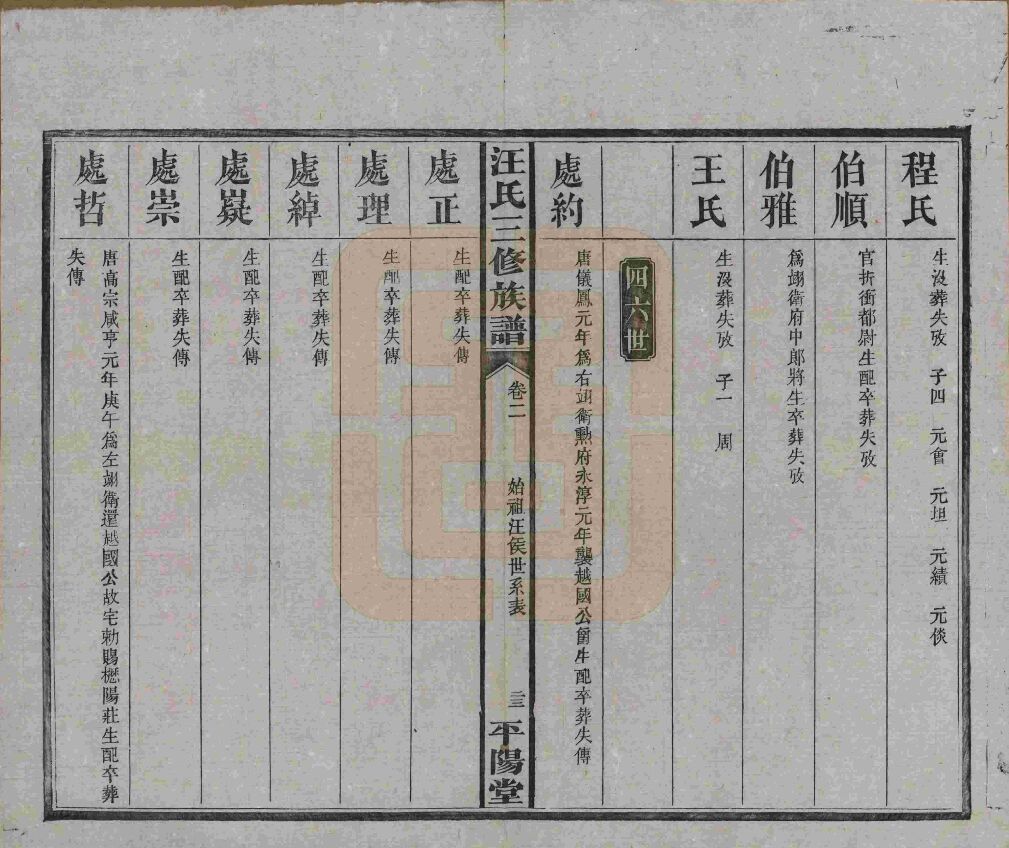 程氏
生沒葬失攷 子四 元會 元坦 元績 元倓
伯順
官折衝都尉生配卒葬失攷
伯雅
為翊衛府中郎將生卒葬失攷
王氏
生沒葬失攷 子一 周
四六世
處約
唐儀鳳元年為右翊衛勳府永淳元年襲越國公爵生配卒葬失傳
汪氏三修族譜 卷二 始祖汪侯世系表 二三 平陽堂
處正
生配卒葬失傳
處理
生配卒葬失傳
處綽
生配卒葬失傳
處嶷
生配卒葬失傳
處崇
生配卒葬失傳
處哲
唐高宗咸亨元年庚午為左翊衛還越國公故宅勅賜櫪陽莊生配卒葬
失傳